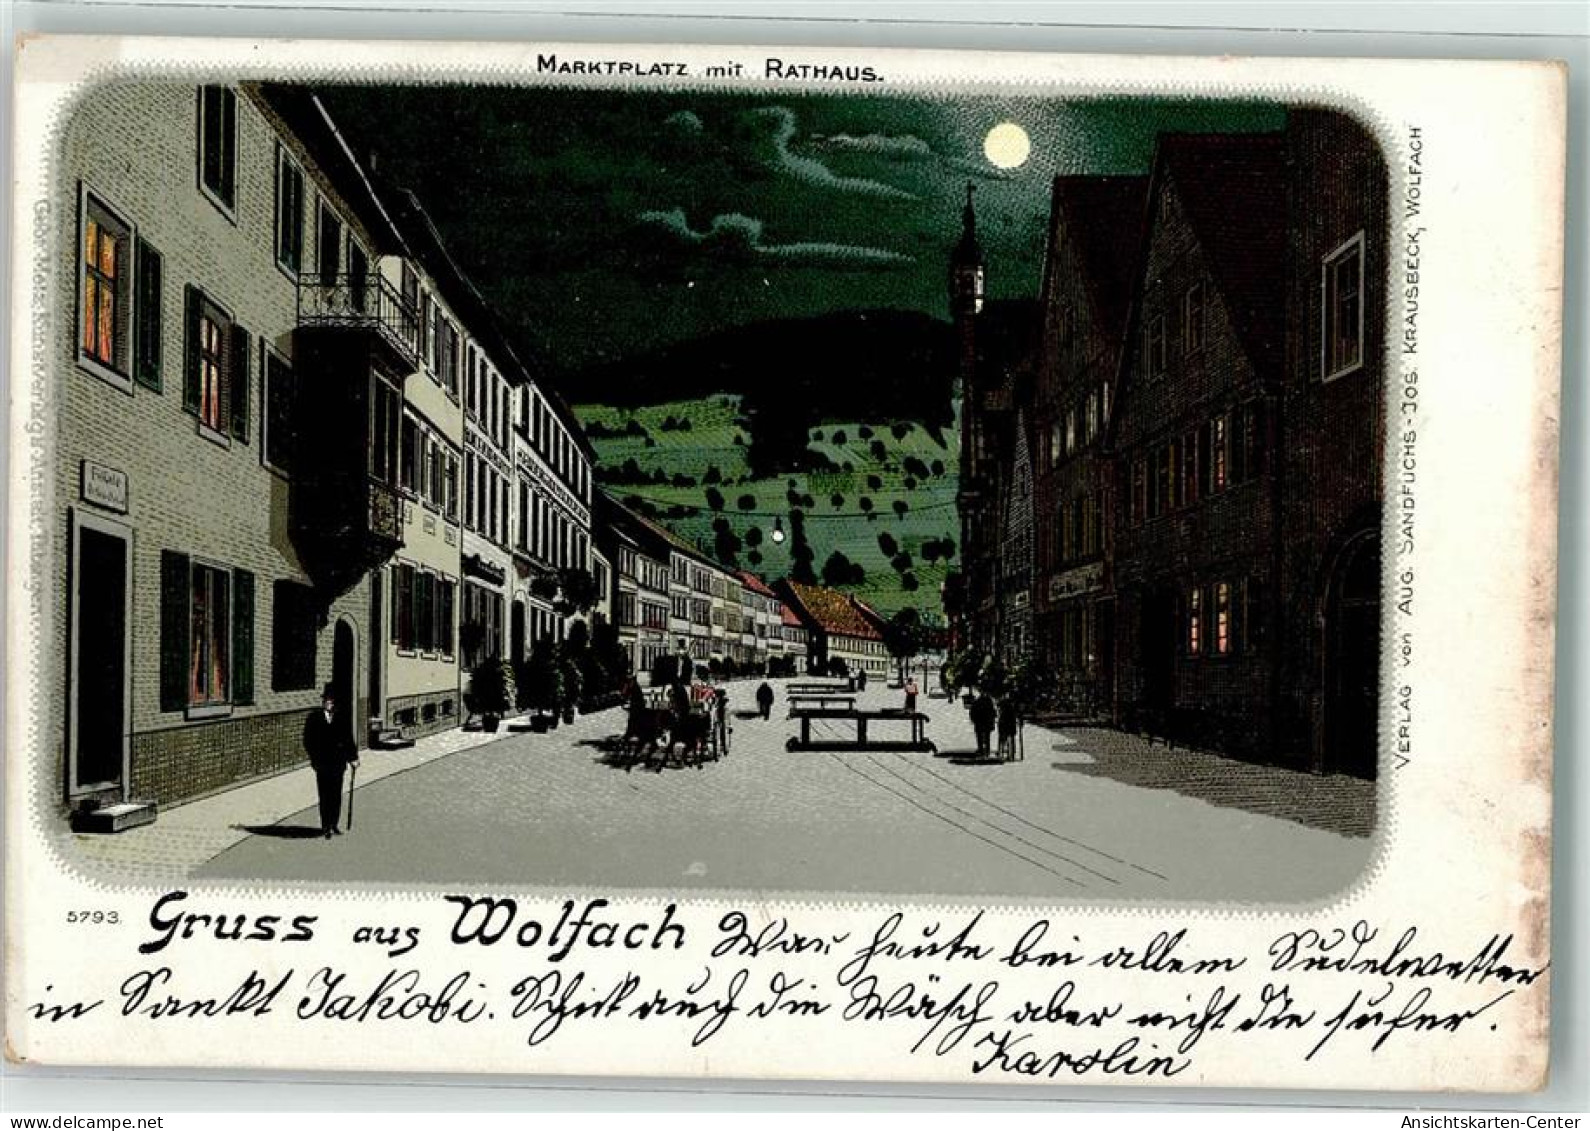 MARKTPLATZ mit RATHAUS.
VERLAG von AUG. SANDFUCHS - JOS. KRAUSBECK, WOLFACH
5793.
Gruss aus Wolfach War heute bei allem Sudelwetter
in Sankt Jakobi. Schick auch die Wäsch aber nicht die
Karolin
www.delcampe.net
Ansichtskarten-Center